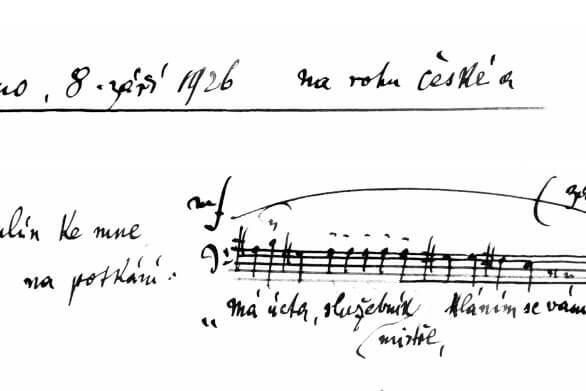 no, 8. září 1926 na rohu České a
mf
lín ke mne
na potkání:
„Má úcta, služebník kláním se vám
mistře,